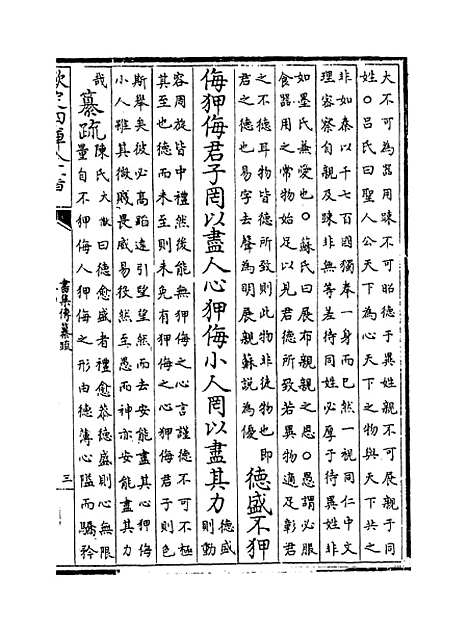 大不可為器用踈不可昭德于異姓親不可展親于同
姓○呂氏曰聖人公天下為心天下之物與天下共之
非如秦以千七百國獨奉一身而已然一視同仁中文
理宻察自親及踈非無等差待同姓必厚于待異姓非
如墨氏兼愛也○蘇氏曰展布親親之恩○愚謂必服
食器用之常物始足以見君德所致若異物適足彰君
之不德耳物皆德所致則此物非徒物也即
君之德也易字去聲為明展親蘇說為優
德盛不狎
侮狎侮君子罔以盡人心狎侮小人罔以盡其力
德盛
則動
容周旋皆中禮然後能無狎侮之心言謹德不可不極
其至也德而未至則未免有狎侮之心狎侮君子則色
斯舉矣彼必高蹈遠引望望然而去安能盡其心狎侮
小人雖其微賤畏威易役然至愚而神亦安能盡其力
哉
纂疏
陳氏大猷曰德愈盛者禮愈恭德盛則心無限
量自不狎侮人狎侮之形由德薄心隘而驕矜
欽定四庫全書
書集傳纂疏
三